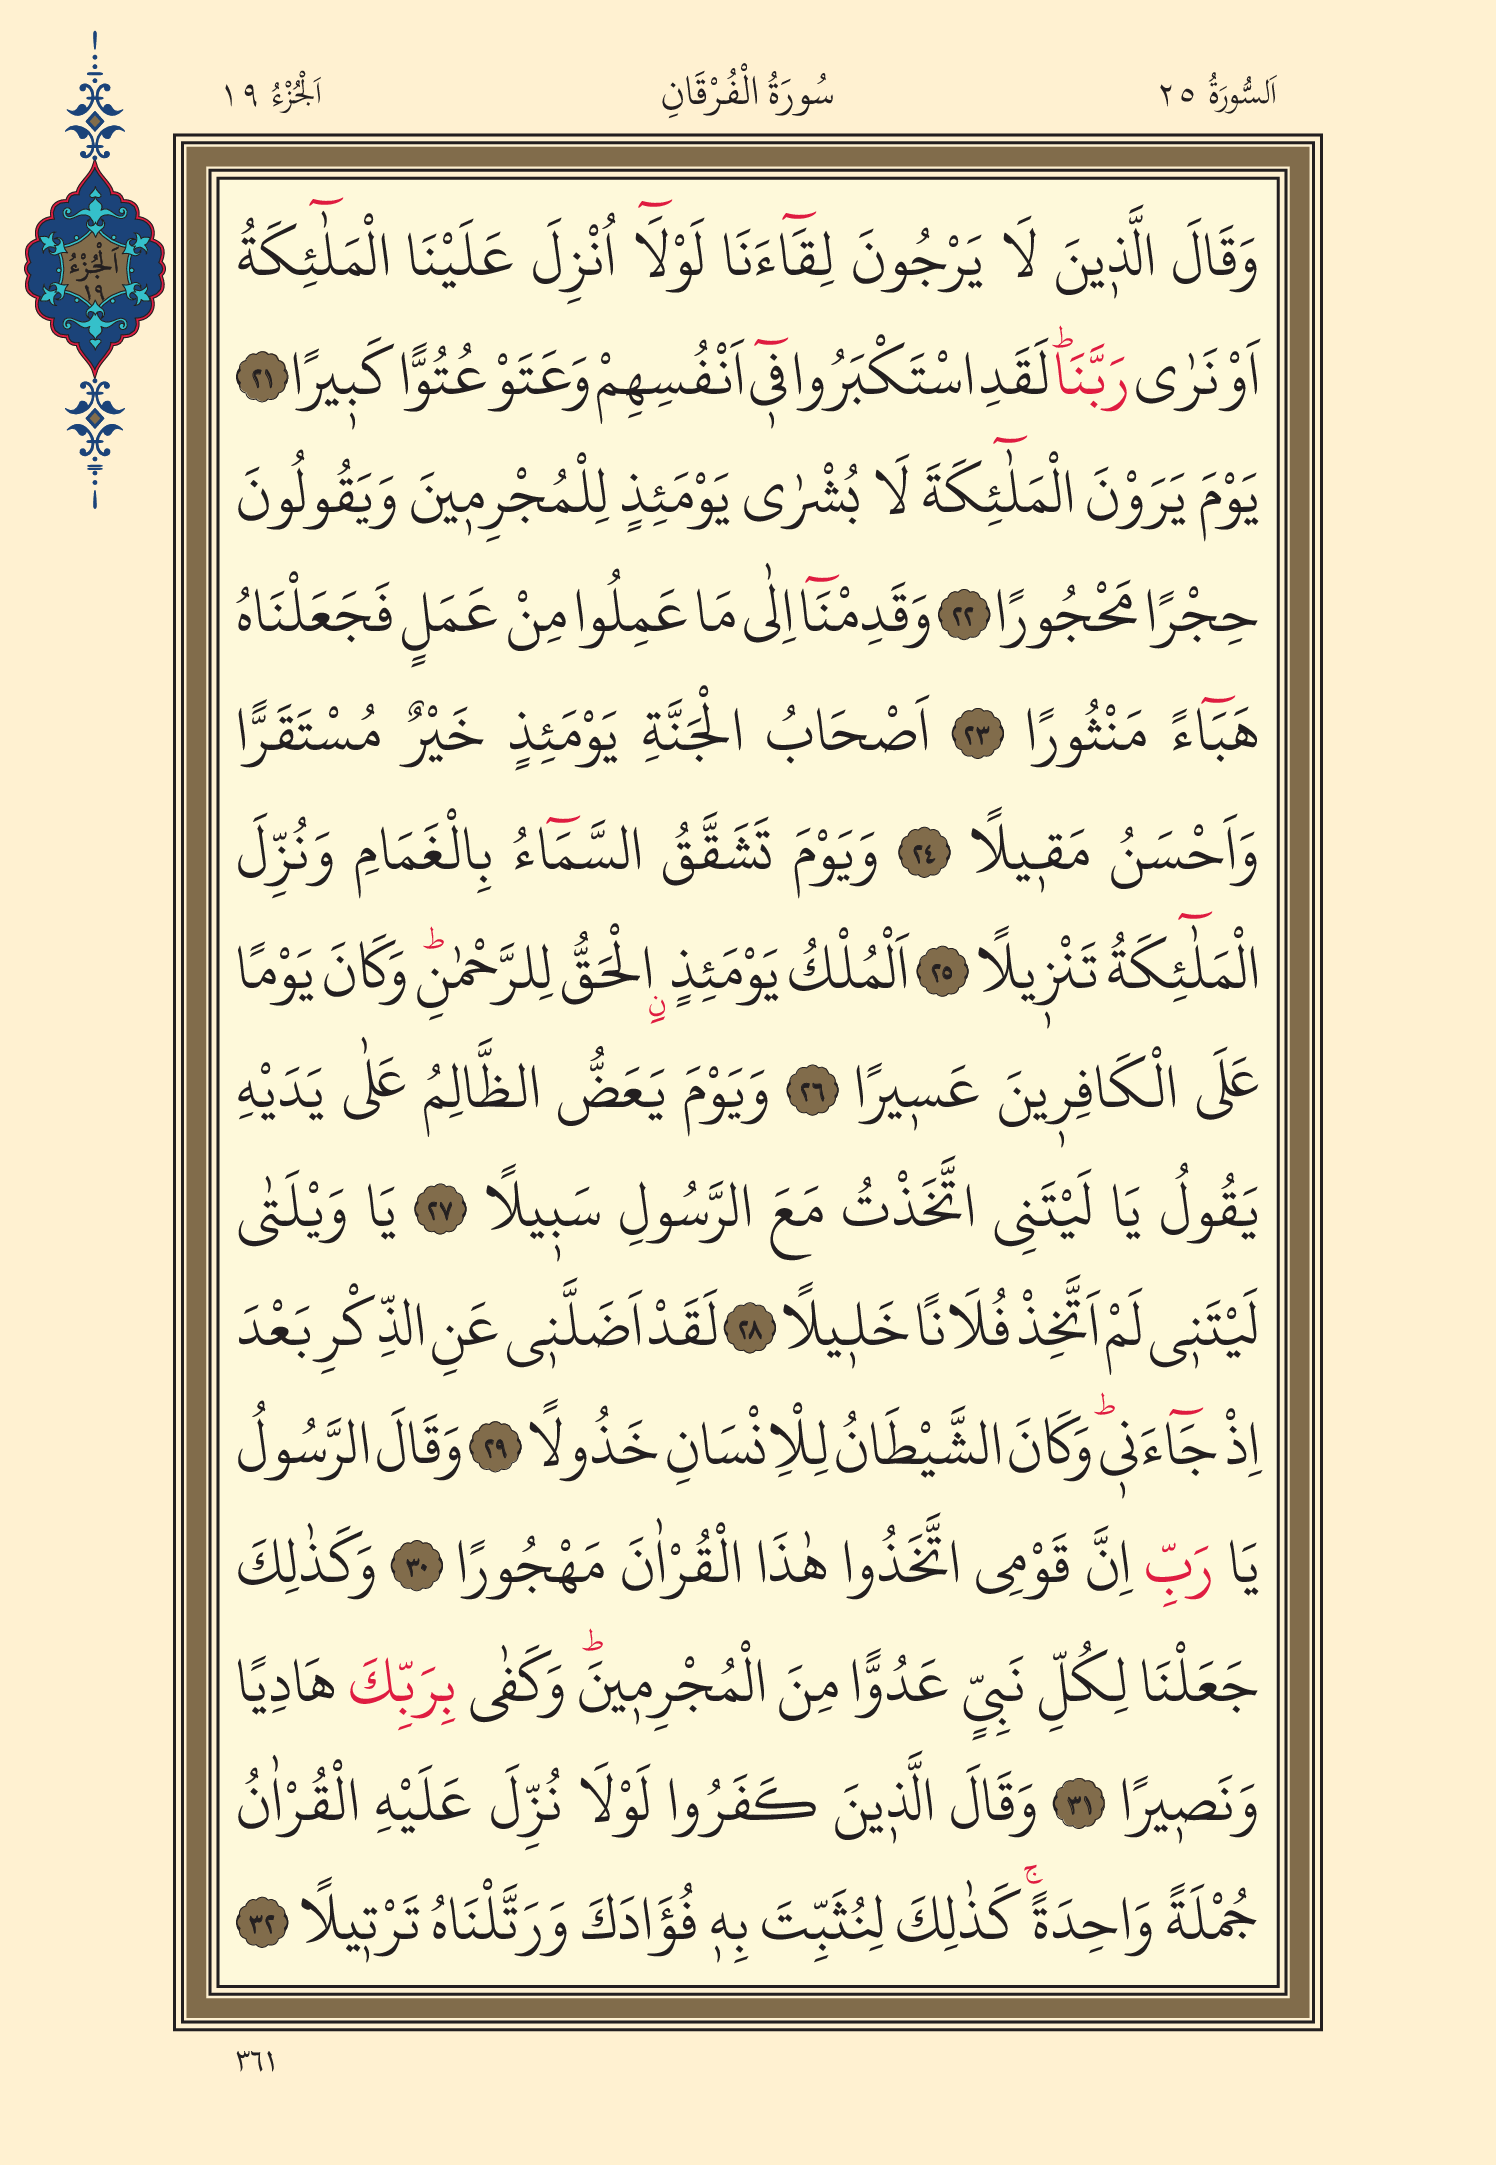 اَلسُّورَةُ ٢٥
سُورَةُ الْفُرْقَانِ
اَلْجُزْءُ ١٩
اَلْجُزْءُ
١٩
وَقَالَ الَّذ۪ينَ لَا يَرْجُونَ لِقَٓاءَنَا لَوْلَٓا اُنْزِلَ عَلَيْنَا الْمَلٰٓئِكَةُ
اَوْ نَرٰى رَبَّنَاۜ لَقَدِ اسْتَكْبَرُوا ف۪ٓي اَنْفُسِهِمْ وَعَتَوْ عُتُوًّا كَب۪يرًا ٢١
يَوْمَ يَرَوْنَ الْمَلٰٓئِكَةَ لَا بُشْرٰى يَوْمَئِذٍ لِلْمُجْرِم۪ينَ وَيَقُولُونَ
حِجْرًا مَحْجُورًا ٢٢ وَقَدِمْنَٓا اِلٰى مَا عَمِلُوا مِنْ عَمَلٍ فَجَعَلْنَاهُ
هَبَٓاءً مَنْثُورًا ٢٣ اَصْحَابُ الْجَنَّةِ يَوْمَئِذٍ خَيْرٌ مُسْتَقَرًّا
وَاَحْسَنُ مَق۪يلًا ٢٤ وَيَوْمَ تَشَقَّقُ السَّمَٓاءُ بِالْغَمَامِ وَنُزِّلَ
الْمَلٰٓئِكَةُ تَنْز۪يلًا ٢٥ اَلْمُلْكُ يَوْمَئِذٍ نِ الْحَقُّ لِلرَّحْمٰنِۜ وَكَانَ يَوْمًا
عَلَى الْكَافِر۪ينَ عَس۪يرًا ٢٦ وَيَوْمَ يَعَضُّ الظَّالِمُ عَلٰى يَدَيْهِ
يَقُولُ يَا لَيْتَنِي اتَّخَذْتُ مَعَ الرَّسُولِ سَب۪يلًا ٢٧ يَا وَيْلَتٰى
لَيْتَن۪ي لَمْ اَتَّخِذْ فُلَانًا خَل۪يلًا ٢٨ لَقَدْ اَضَلَّن۪ي عَنِ الذِّكْرِ بَعْدَ
اِذْ جَٓاءَن۪يۜ وَكَانَ الشَّيْطَانُ لِلْاِنْسَانِ خَذُولًا ٢٩ وَقَالَ الرَّسُولُ
يَا رَبِّ اِنَّ قَوْمِي اتَّخَذُوا هٰذَا الْقُرْاٰنَ مَهْجُورًا ٣٠ وَكَذٰلِكَ
جَعَلْنَا لِكُلِّ نَبِيٍّ عَدُوًّا مِنَ الْمُجْرِم۪ينَۜ وَكَفٰى بِرَبِّكَ هَادِيًا
وَنَص۪يرًا ٣١ وَقَالَ الَّذ۪ينَ كَفَرُوا لَوْلَا نُزِّلَ عَلَيْهِ الْقُرْاٰنُ
جُمْلَةً وَاحِدَةًۚ كَذٰلِكَ لِنُثَبِّتَ بِه۪ فُؤَادَكَ وَرَتَّلْنَاهُ تَرْت۪يلًا ٣٢
٣٦١